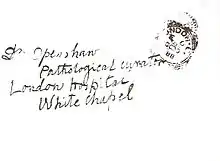 Dr Openshaw
Pathological curator
London Hospital
White chapel
LONDON